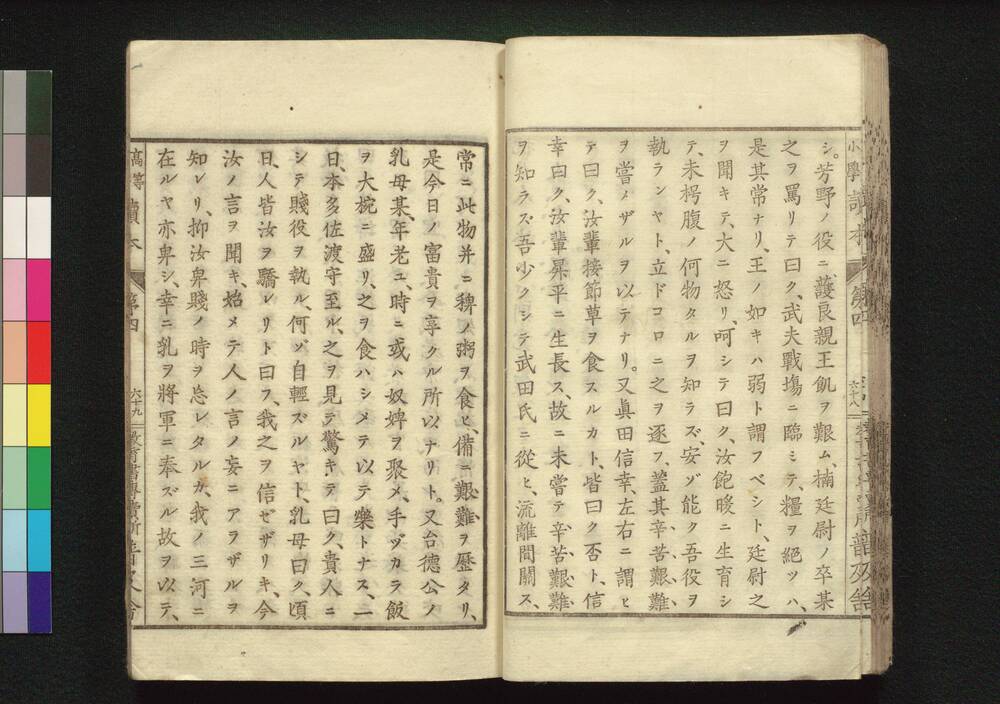 シ。芳野ノ役ニ、護良親王飢ヲ艱ム、楠廷尉ノ卒某
之ヲ罵リテ曰ク、武夫戰塲ニ臨ミテ、糧ヲ絕ツハ、
是其常ナリ、王ノ如キハ弱ト謂フベシト、廷尉之
ヲ聞キテ、大ニ怒リ、呵シテ曰ク、汝飽暖ニ生育シ
テ、未枵腹ノ何物タルヲ知ラズ、安ゾ能ク吾役ヲ
執ランヤト、立ドコロニ之ヲ逐フ、蓋其辛苦艱難
ヲ嘗メザルヲ以テナリ。又眞田信幸、左右ニ謂ヒ
テ曰ク、汝輩接節草ヲ食スルカト、皆曰ク否ト、信
幸曰ク、汝輩昇平ニ生長ス、故ニ未嘗テ辛苦艱難
ヲ知ラズ、吾少クシテ武田氏ニ從ヒ、流離間關ス、
常ニ此物并ニ稗ノ粥ヲ食ヒ、備ニ艱難ヲ歷タリ、
是今日ノ富貴ヲ享クル所以ナリト。又台德公ノ
乳母某、年老ユ、時ニ或ハ奴婢ヲ聚メ、手ヅカラ飯
ヲ大椀ニ盛リ、之ヲ食ハシメテ以テ樂トナス、一
日、本多佐渡守至ル、之ヲ見テ驚キテ曰ク、貴人ニ
シテ賤役ヲ執ル、何ゾ自輕ズルヤト、乳母曰ク、頃
日、人皆汝ヲ驕レリト曰フ、我之ヲ信ゼザリキ、今
汝ノ言ヲ聞キ、始メテ人ノ言ノ妄ニアラザルヲ
知レリ、抑汝卑賤ノ時ヲ忘レタルカ、我ノ三河ニ
在ルヤ亦卑シ、幸ニ乳ヲ將軍ニ奉ズル故ヲ以テ、
高等讀本 第四 六十九